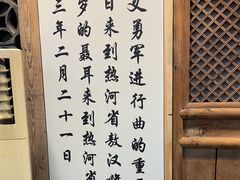 义勇军进行曲的重
日来到热河省敖汉
梦的聂耳来到热河省
三年二月二十一日